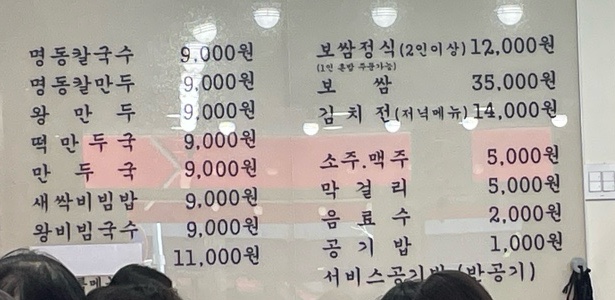 명동칼국수 9,000원
명동칼만두 9,000원
왕만두 9,000원
떡만두국 9,000원
만두국 9,000원
새싹비빔밥 9,000원
왕비빔국수 9,000원
11,000원
보쌈정식(2인이상) 12,000원
(1인 혼밥 주문가능)
보쌈 35,000원
김치전(저녁메뉴) 14,000원
소주.맥주 5,000원
막걸리 5,000원
음료수 2,000원
공기밥 1,000원
서비스공기밥 (반공기)